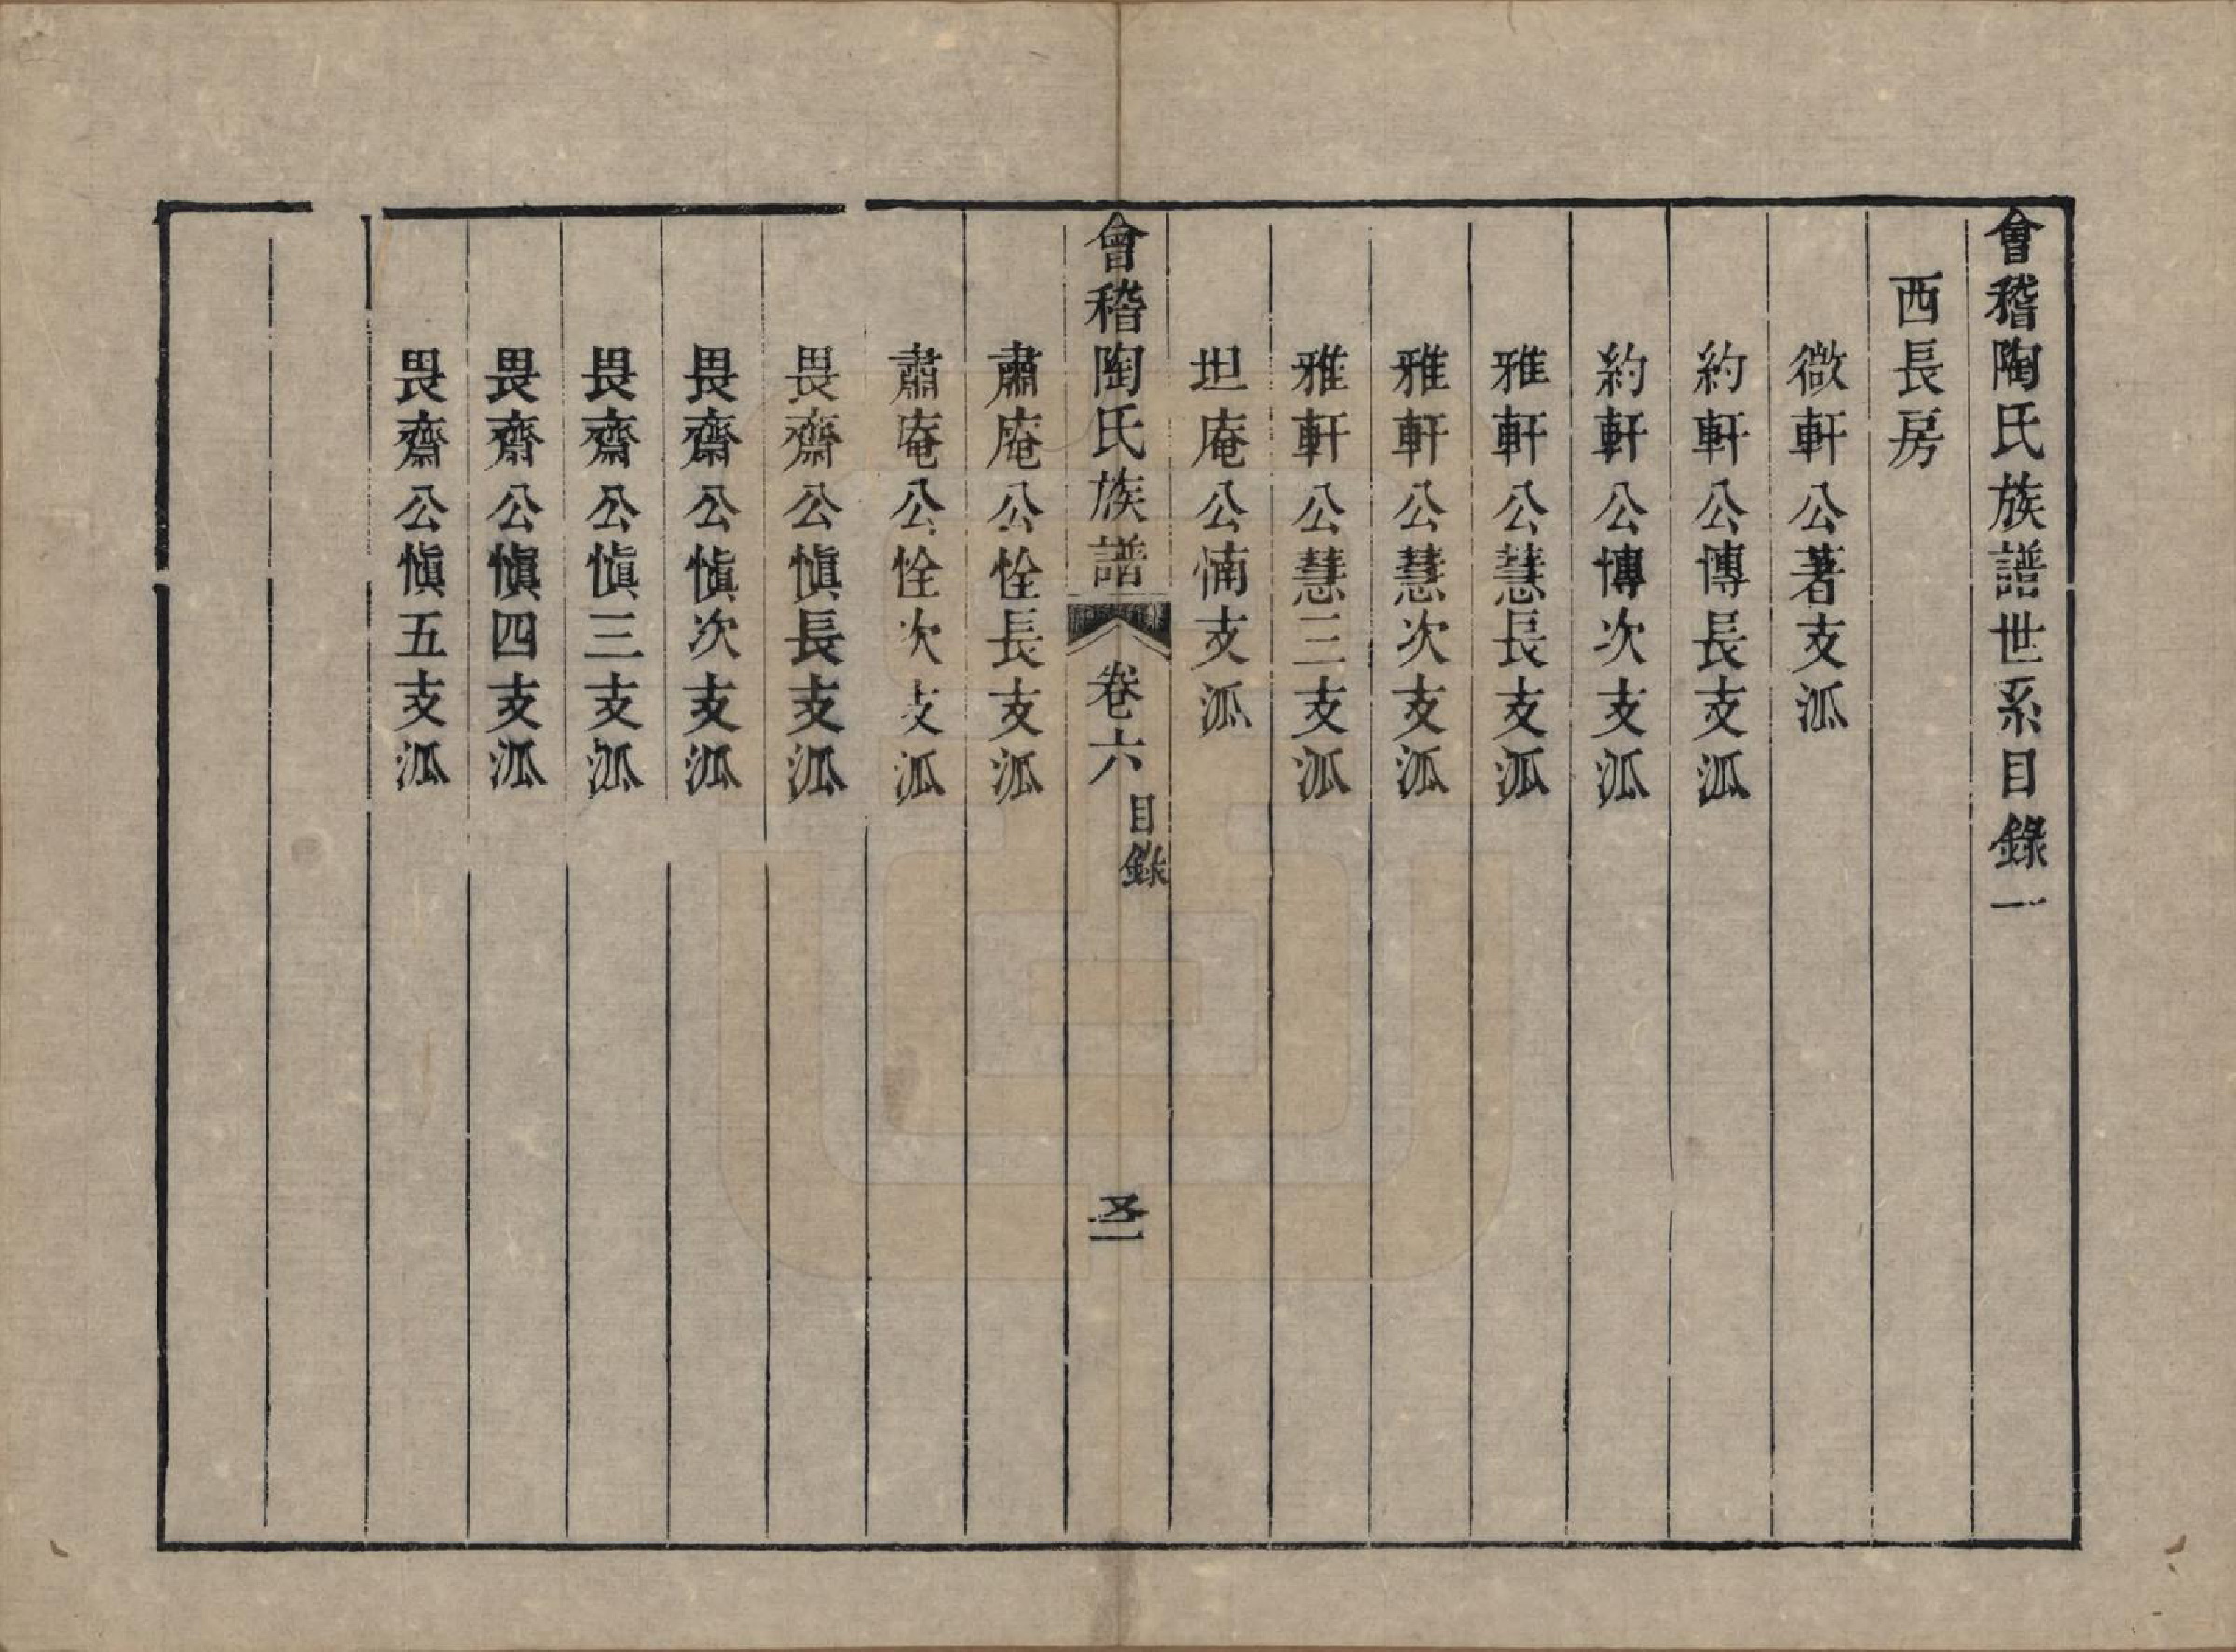 會稽陶氏族譜世系目錄一
西長房
微軒公著支派
約軒公博長支派
約軒公博次支派
雅軒公慧長支派
雅軒公慧次支派
雅軒公慧三支派
坦庵公愐支派
會稽陶氏族譜 卷六 目錄
肅庵公恮長支派
肅庵公恮次支派
畏齋公愼長支派
畏齋公愼次支派
畏齋公愼三支派
畏齋公愼四支派
畏齋公愼五支派